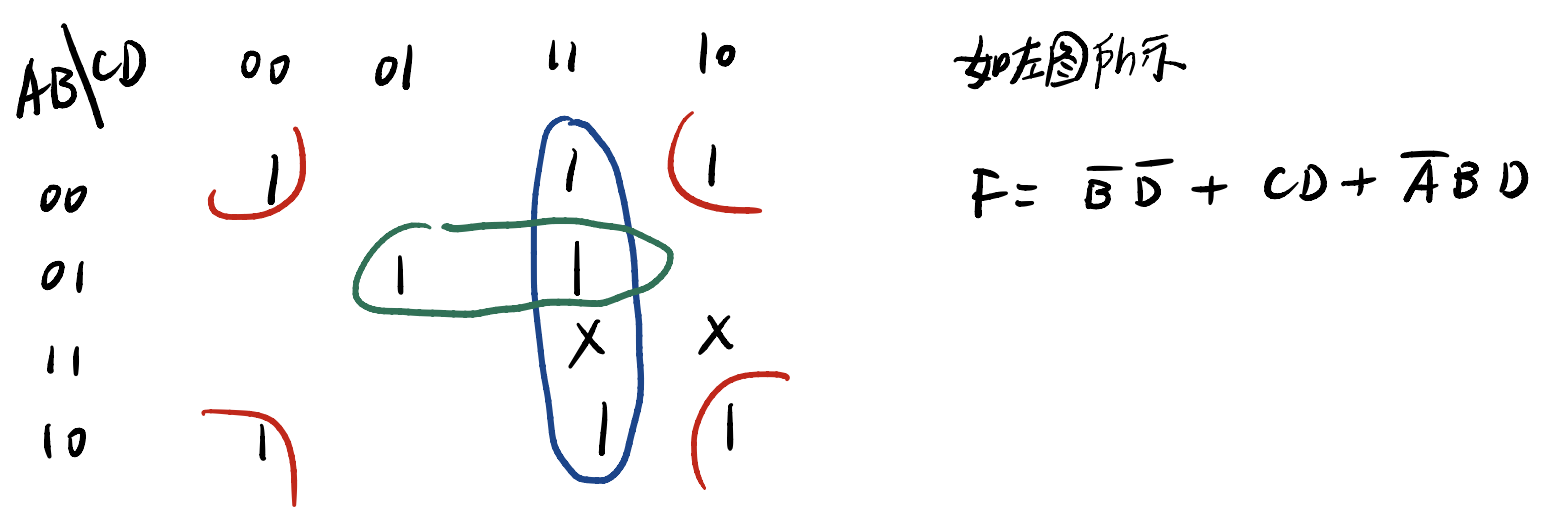 AB\CD 00 01 11 10
00 1 1 1
01 1 1
11 X X
10 1 1 1
如左图所示
F = B̅ D̅ + CD + A̅ B D